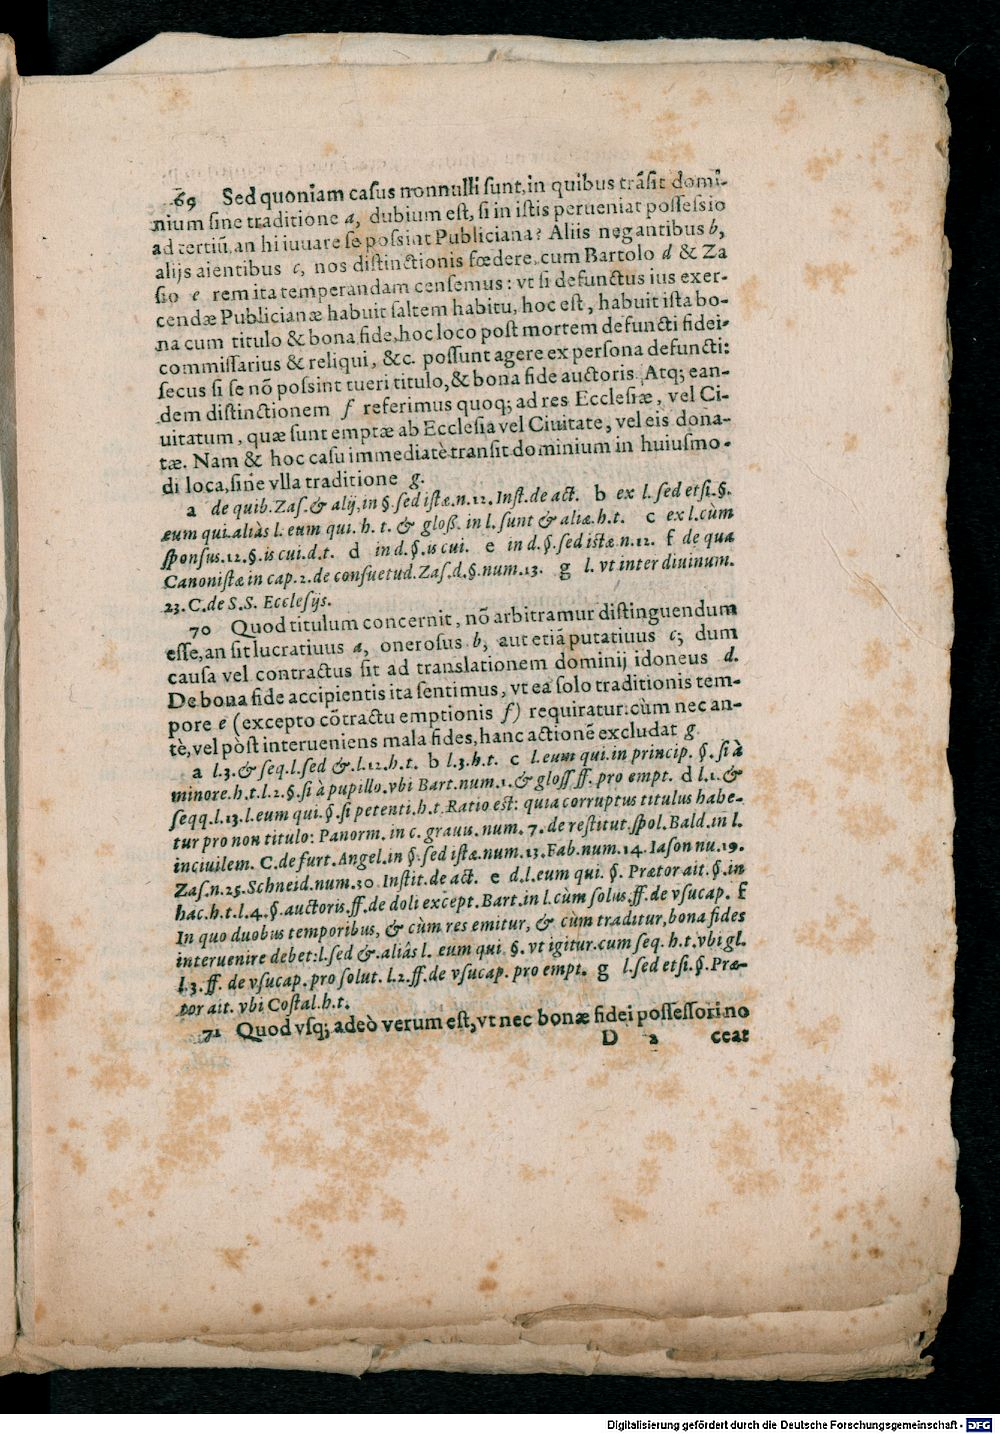 69 Sed quoniam casus nonnulli sunt, in quibus trãsit domi-
nium sine traditione a, dubium est, si in istis perueniat possessio
ad tertiũ, an hi iuuare se possint Publiciana? Aliis negantibus b,
alijs aientibus c, nos distinctionis fœdere, cum Bartolo d & Za
sio e rem ita temperandam censemus: vt si defunctus ius exer-
cendæ Publicianæ habuit saltem habitu, hoc est, habuit ista bo-
na cum titulo & bona fide, hoc loco post mortem defuncti fidei-
commissarius & reliqui, &c. possunt agere ex persona defuncti:
secus si se nõ possint tueri titulo, & bona fide auctoris. Atq; ean-
dem distinctionem f referimus quoq; ad res Ecclesiæ, vel Ci-
uitatum, quæ sunt emptæ ab Ecclesia vel Ciuitate, vel eis dona-
tæ. Nam & hoc casu immediatè transit dominium in huiusmo-
di loca, sine vlla traditione g.
a de quib. Zas. & alij, in §. sed istæ. n. 12. Inst. de act. b ex l. sed etsi. §.
eum qui. aliàs l. eum qui. h. t. & gloß. in l. sunt & aliæ. h. t. c ex l. cùm
sponsus. 12. §. is cui. d. t. d in d. §. is cui. e in d. §. sed istæ n. 12. f de qua
Canonistæ in cap. 2. de consuetud. Zas. d. §. num. 13. g l. vt inter diuinum.
23. C. de S. S. Ecclesijs.
70 Quod titulum concernit, nõ arbitramur distinguendum
esse, an sit lucratiuus a, onerosus b, aut etiã putatiuus c; dum
causa vel contractus sit ad translationem dominij idoneus d.
De bona fide accipientis ita sentimus, vt ea solo traditionis tem-
pore e (excepto cõtractu emptionis f) requiratur: cùm nec an-
tè, vel pòst interueniens mala fides, hanc actionẽ excludat g.
a l. 3. & seq. l. sed &. l. 12. h. t. b l. 3. h. t. c l. eum qui. in princip. §. si à
minore. h. t. l. 2. §. si à pupillo. vbi Bart. num. 1. & gloss. ff. pro empt. d l. 1. &
seqq. l. 13. l. eum qui. §. si petenti. h. t. Ratio est: quia corruptus titulus habe-
tur pro non titulo: Panorm. in c. grauis. num. 7. de restitut. spol. Bald. in l.
inciuilem. C. de furt. Angel. in §. sed istæ. num. 13. Fab. num. 14. Iason nu. 19.
Zas. n. 25. Schneid. num. 30. Instit. de act. e d. l. eum qui. §. Prætor ait. §. in
hac. h. t. l. 4. §. auctoris. ff. de doli except. Bart. in l. cùm solus. ff. de vsucap. f
In quo duobus temporibus, & cùm res emitur, & cùm traditur, bona fides
interuenire debet: l. sed &. aliâs l. eum qui §. vt igitur. cum seq. h. t. vbi gl.
l. 3. ff. de vsucap. pro solut. l. 2. ff. de vsucap. pro empt. g l. sed etsi. §. Præ-
tor ait. vbi Costal. h. t.
71 Quod vsq; adeò verum est, vt nec bonæ fidei possessori no
D 2 ceat
Digitalisierung gefördert durch die Deutsche Forschungsgemeinschaft - DFG